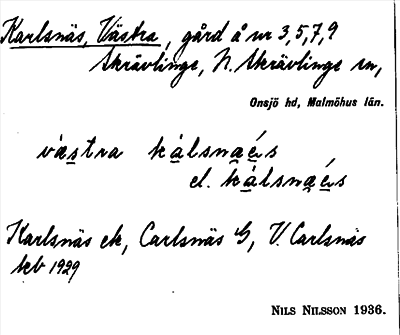 Karlsnäs, Västra, gård å nr 3,5,7,9
Skrävlinge, N. Skrävlinge sn,
Onsjö hd, Malmöhus län.
västra kálsnaés
el. kàlsnaés
Karlsnäs ek, Carlsnäs G, V. Carlsnäs
kb 1929
Nils Nilsson 1936.